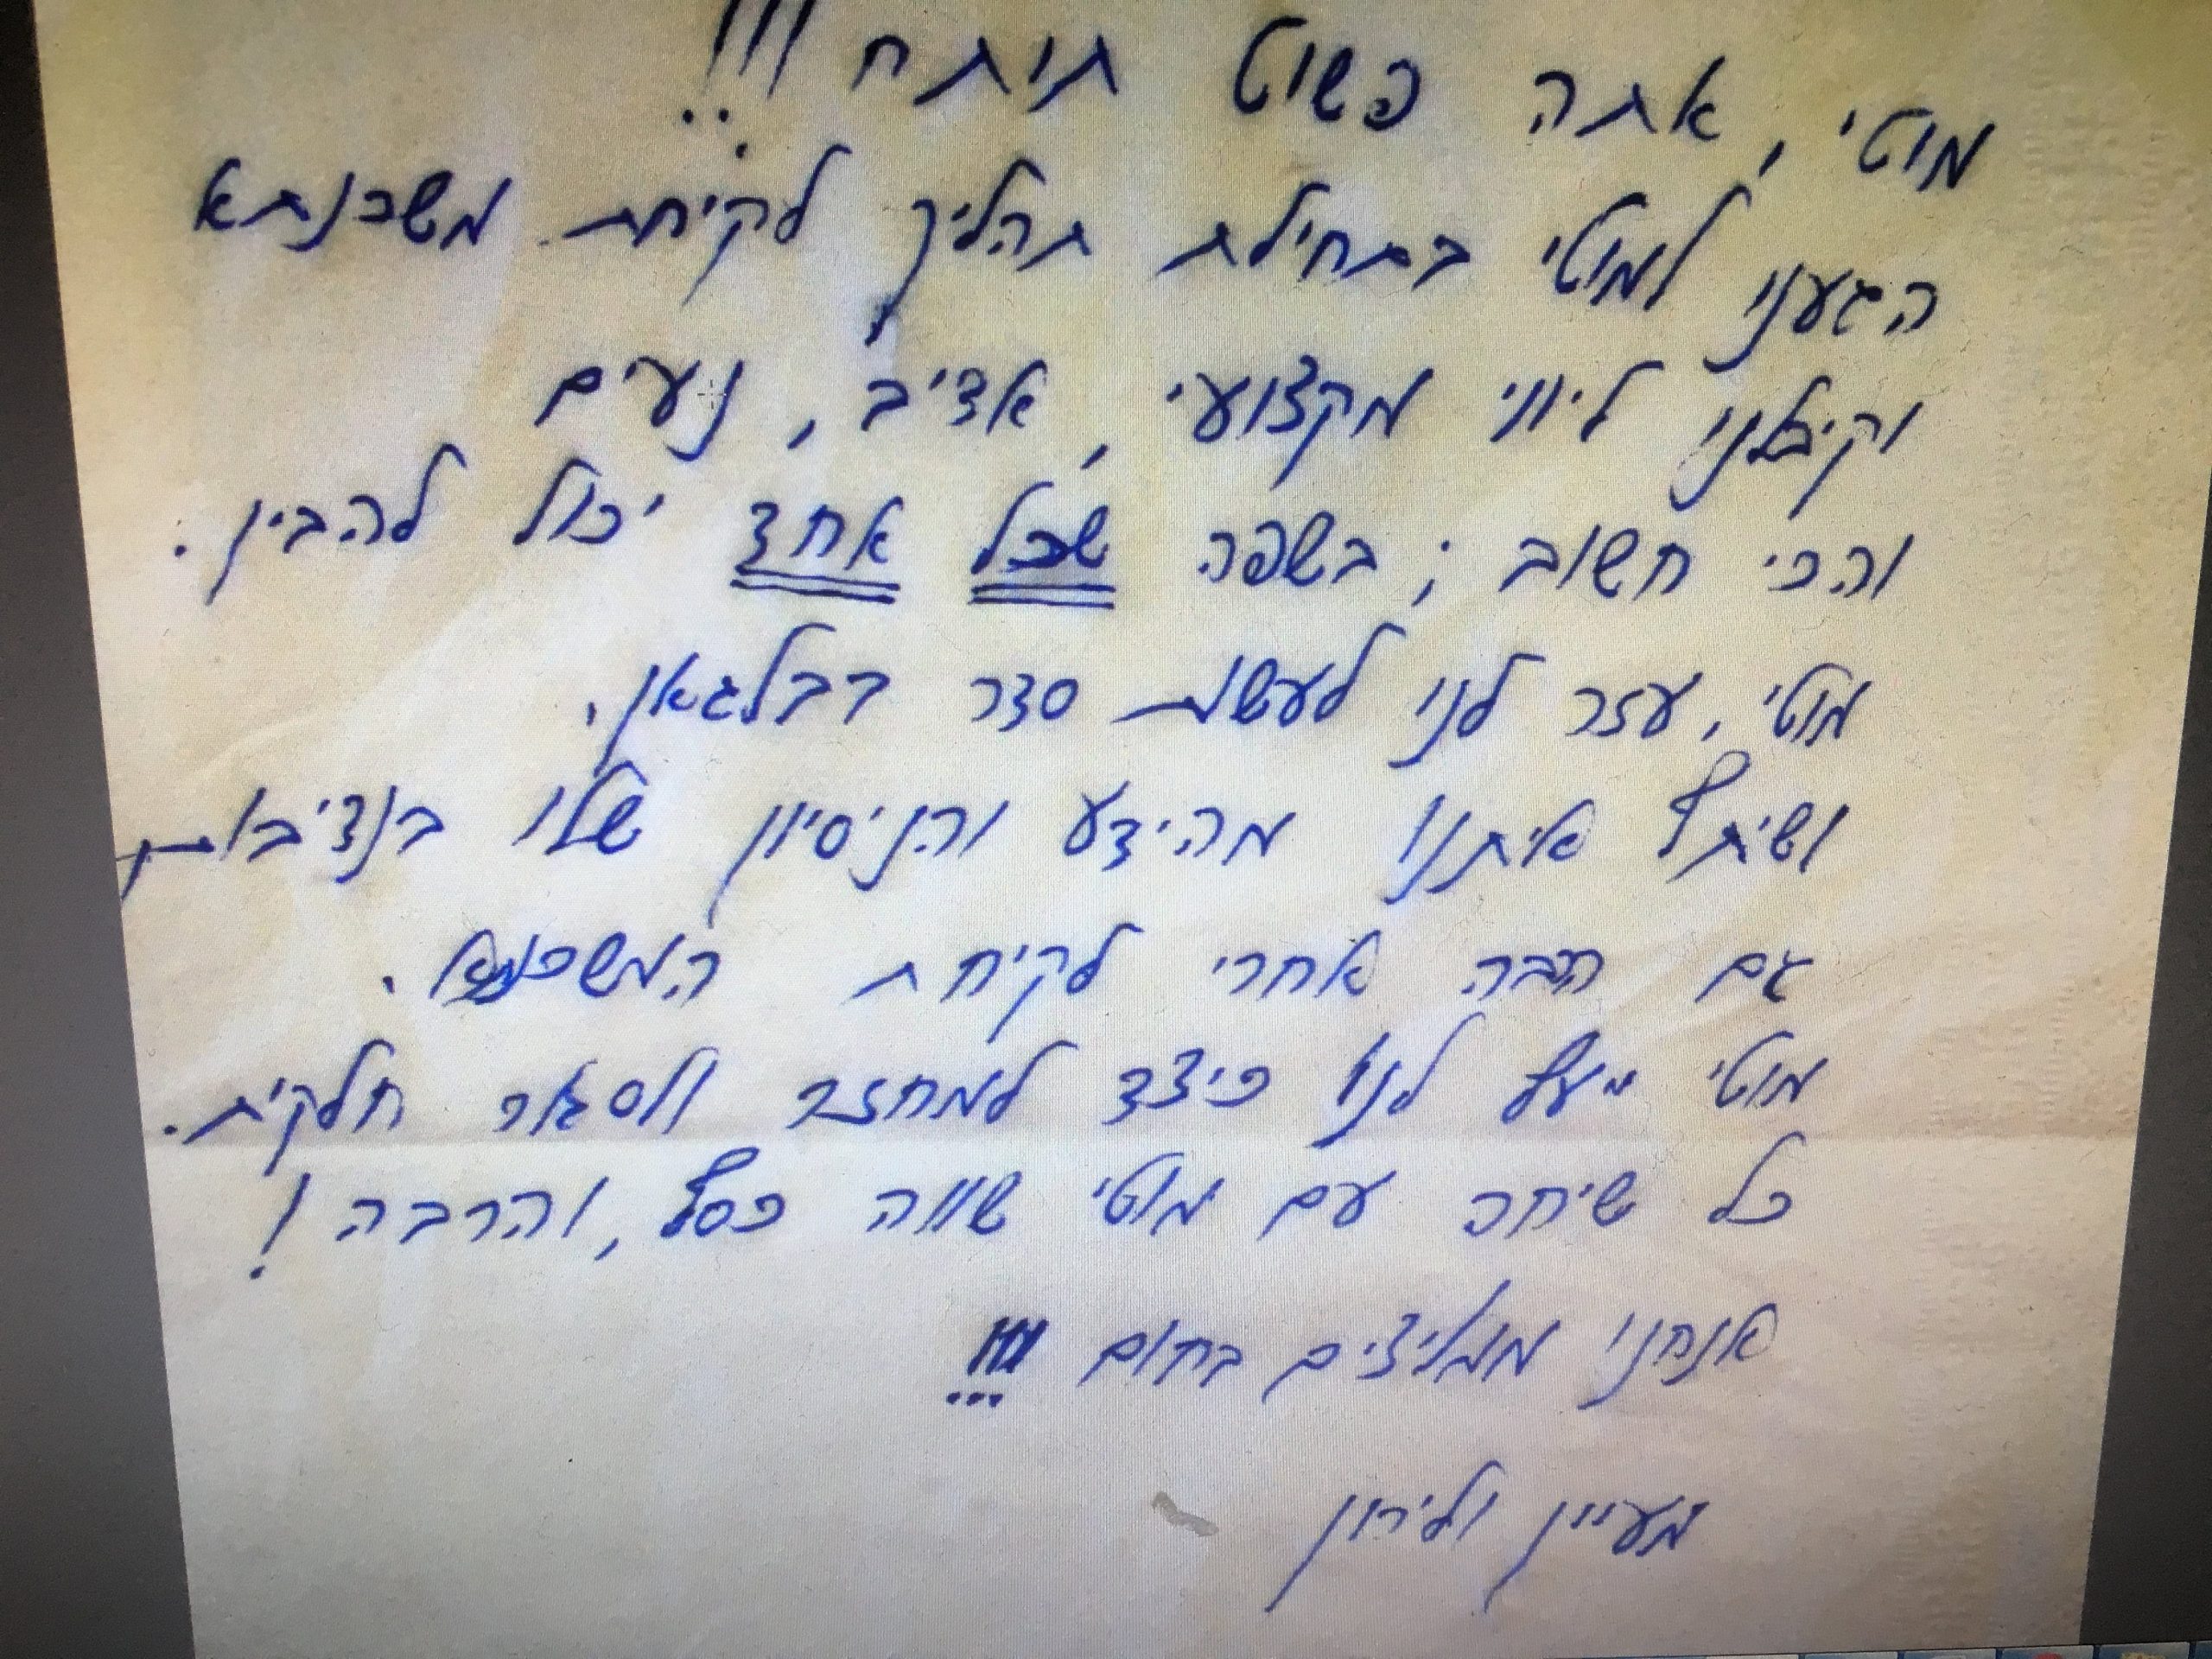 מוטי, אתה פשוט תותח !!!
הגענו למוטי בתחילת תהליך לקיחת משכנתא
וקיבלנו ליווי מקצועי, אדיב, נעים
והכי חשוב ; בשפה שכל אחד יכול להבין.
מוטי, עזר לנו לעשות סדר בבלגאן.
ושיתף איתנו מהידע והניסיון שלו בנדיבות
גם הרבה אחרי לקיחת המשכנתא.
מוטי ייעץ לנו כיצד למחזר ולסגור חלקית.
כל שיחה עם מוטי שווה כסף, והרבה !
אנחנו ממליצים בחום !!!
מעיין ולירון